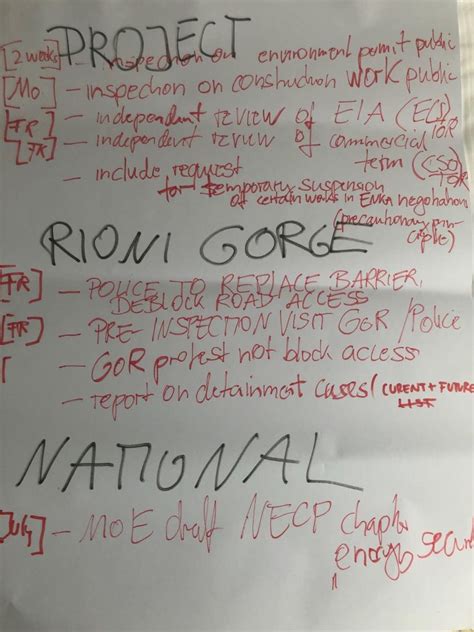 PROJECT
[2 weeks] - inspection on environment permit public
[Mo] - inspection on construction work public
[FR] - independent review of EIA (ECS) TOR
[FR] - independent review of commercial term (CSO) TOR
- include request
for temporary suspension
of certain works in ENKA negotiation
(precautionary principle)
RIONI GORGE
[FR] - POLICE TO REPLACE BARRIER,
DEBLOCK ROAD ACCESS
[FR] - PRE INSPECTION VISIT GOR / Police
[ - GOR protest not block access
- report on detainment cases / CURENT + FUTURE
LIST
NATIONAL
[July] - MOE draft NECP chapter
energy